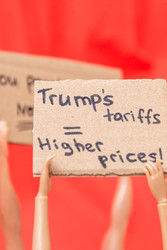 Trump's
tariffs
=
Higher
prices!
you